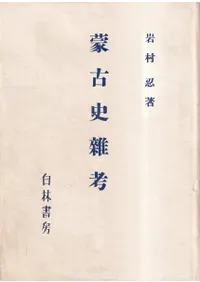 岩村忍著
蒙古史雜考
白林書房